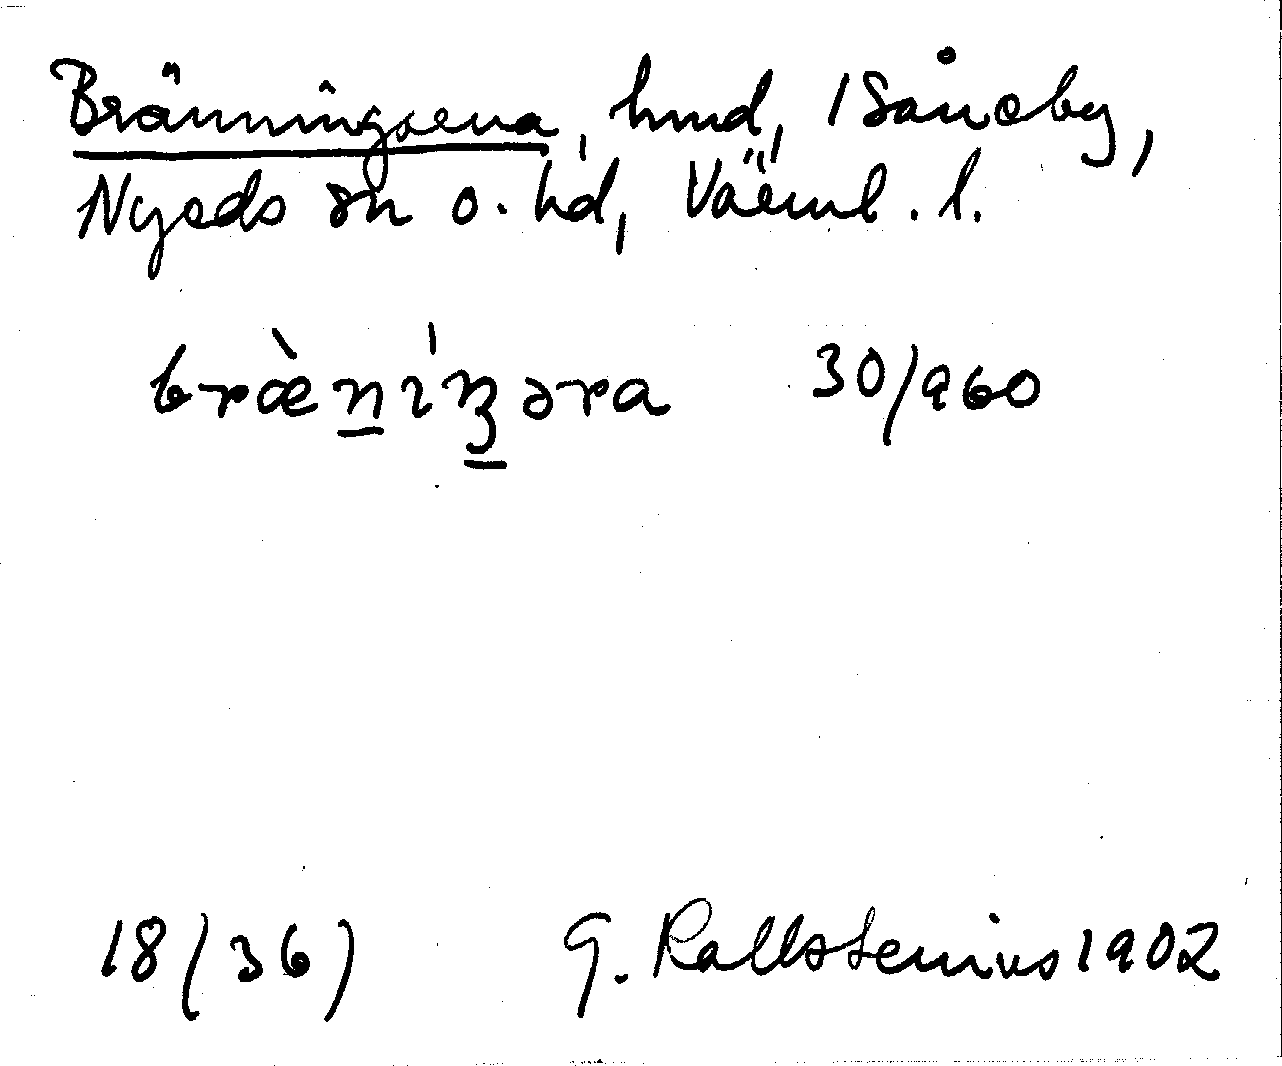 Bränningserna, hmd, i Såneby,
Nyeds sn o. hd, Värml. l.
bræ̀n̲ıŋ̲əra 30/960
18 (36) G. Kallstenius 1902